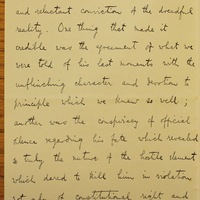 and reluctant conviction of the dreadful
reality. One thing that made it
credible was the agreement of what we
were told of his last moments with the
unflinching character and devotion to
principle which we knew so well;
another was the conspiracy of official
silence regarding his fate which revealed
so truly the nature of the hostile element
which dared to kill him in violation
not only of constitutional right and